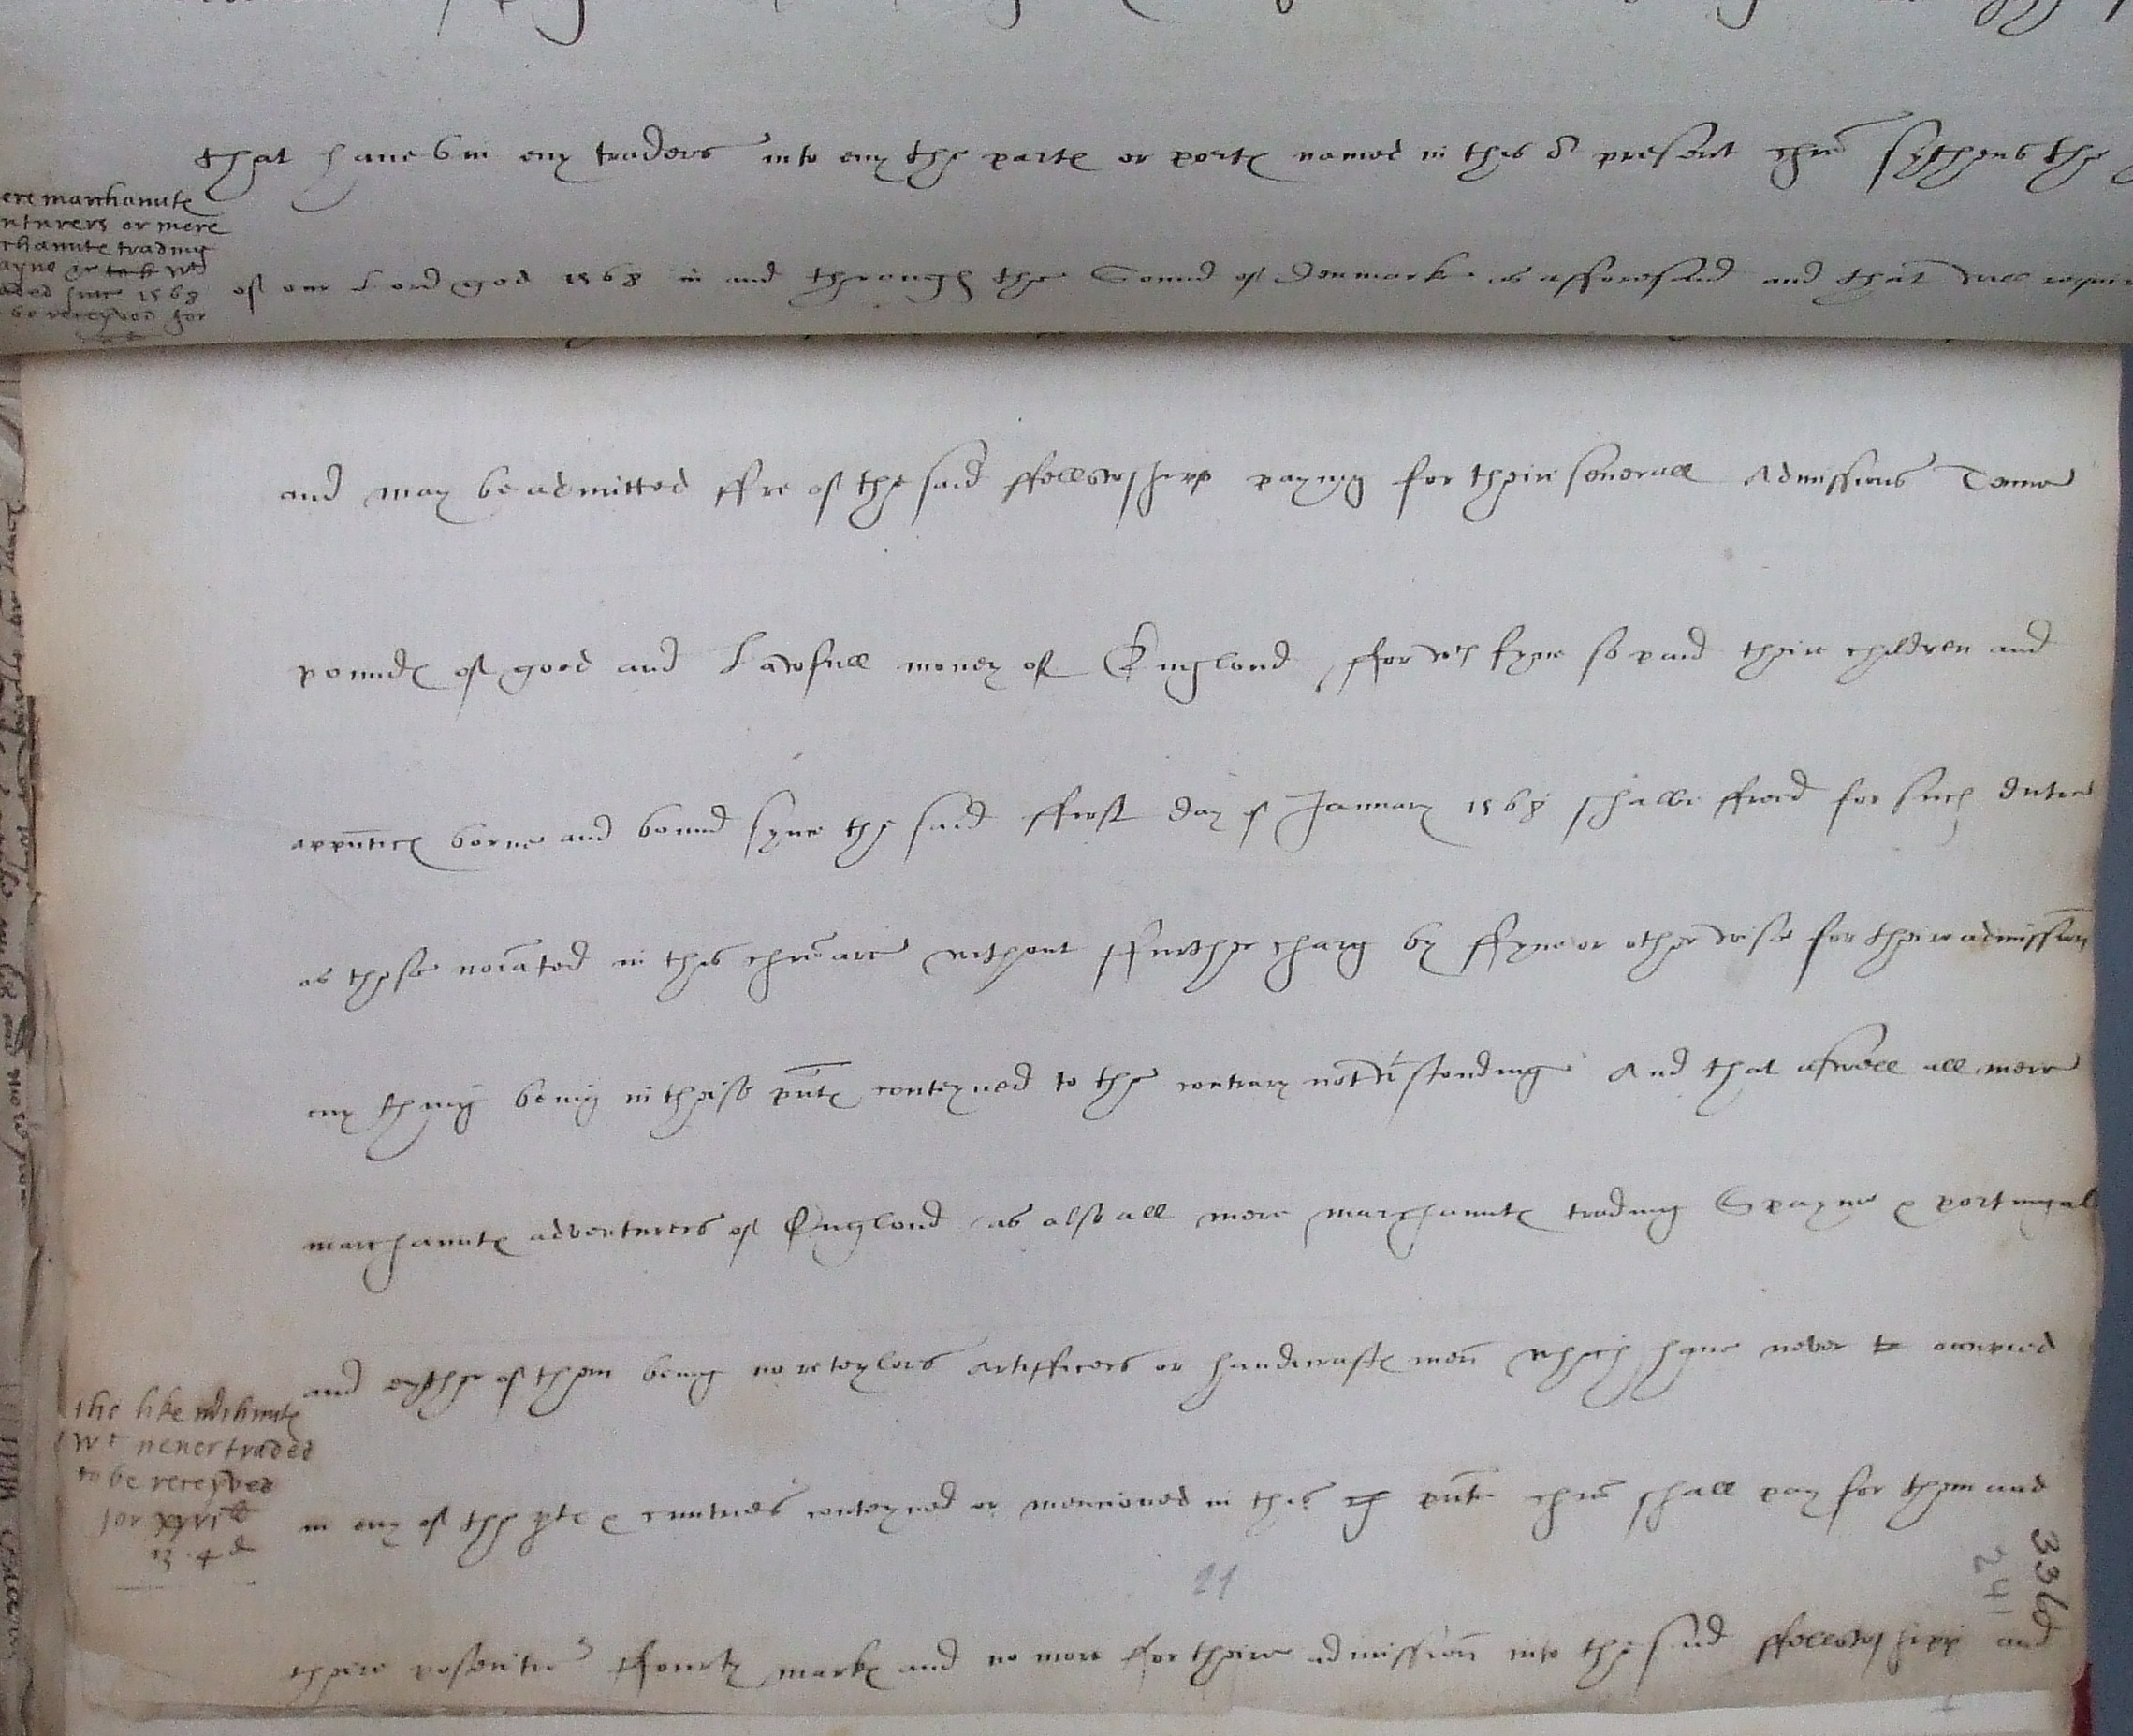 that haue bin eny traders into eny the partes or portes named in this or present chre sythens the
ere marchauntes
nturers or mere
chauntes trading
ayne or wch
aded since 1568
be receyved for
of our Lord god 1568 in and through the Sound of Denmark as afforesaid and that will requir
and may be admitted ffre of the said ffellowshipp payng for theire seuerall Admissions Tenne
poundes of good and Lawfull money of England , ffor wch fyne so paid theire children and
apprntices borne and bound syne the said fferst day of January 1568 shalbe ffreed for such duties
as those noiated in this chre are without ffurther charg by ffyne or other wise for theire admission
eny thing being in theise pntes conteyned to the contrary notwtstonding And that aswell all mere
marchauntes adventurers of England as also all mere marchauntes trading Spayne & portingal
and eyther of them being no reteylors Artifficers or handicraftes men which haue never to occupied
the like mrchauntes
wch neuer traded
to be receyved
for xxvi li
13 . 4 d
in eny of the ptes & cuntries conteyned or mencioned in this ch pnte chre shall pay for them and
336
241
21
theire posteritie ffourty markes and no more ffor theire admission into the said ffellowshipp and